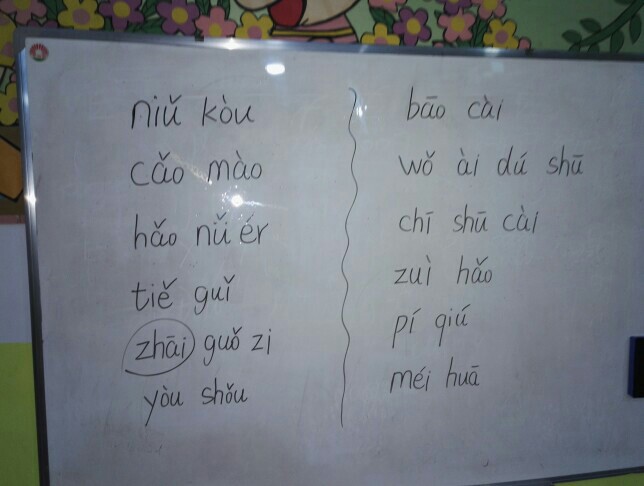 niǔ kòu
cǎo mào
hǎo nǚ ér
tiě guǐ
zhāi guǒ zi
yòu shǒu
bāo cài
wǒ ài dú shū
chī shū cài
zuì hǎo
pí qiú
méi huā